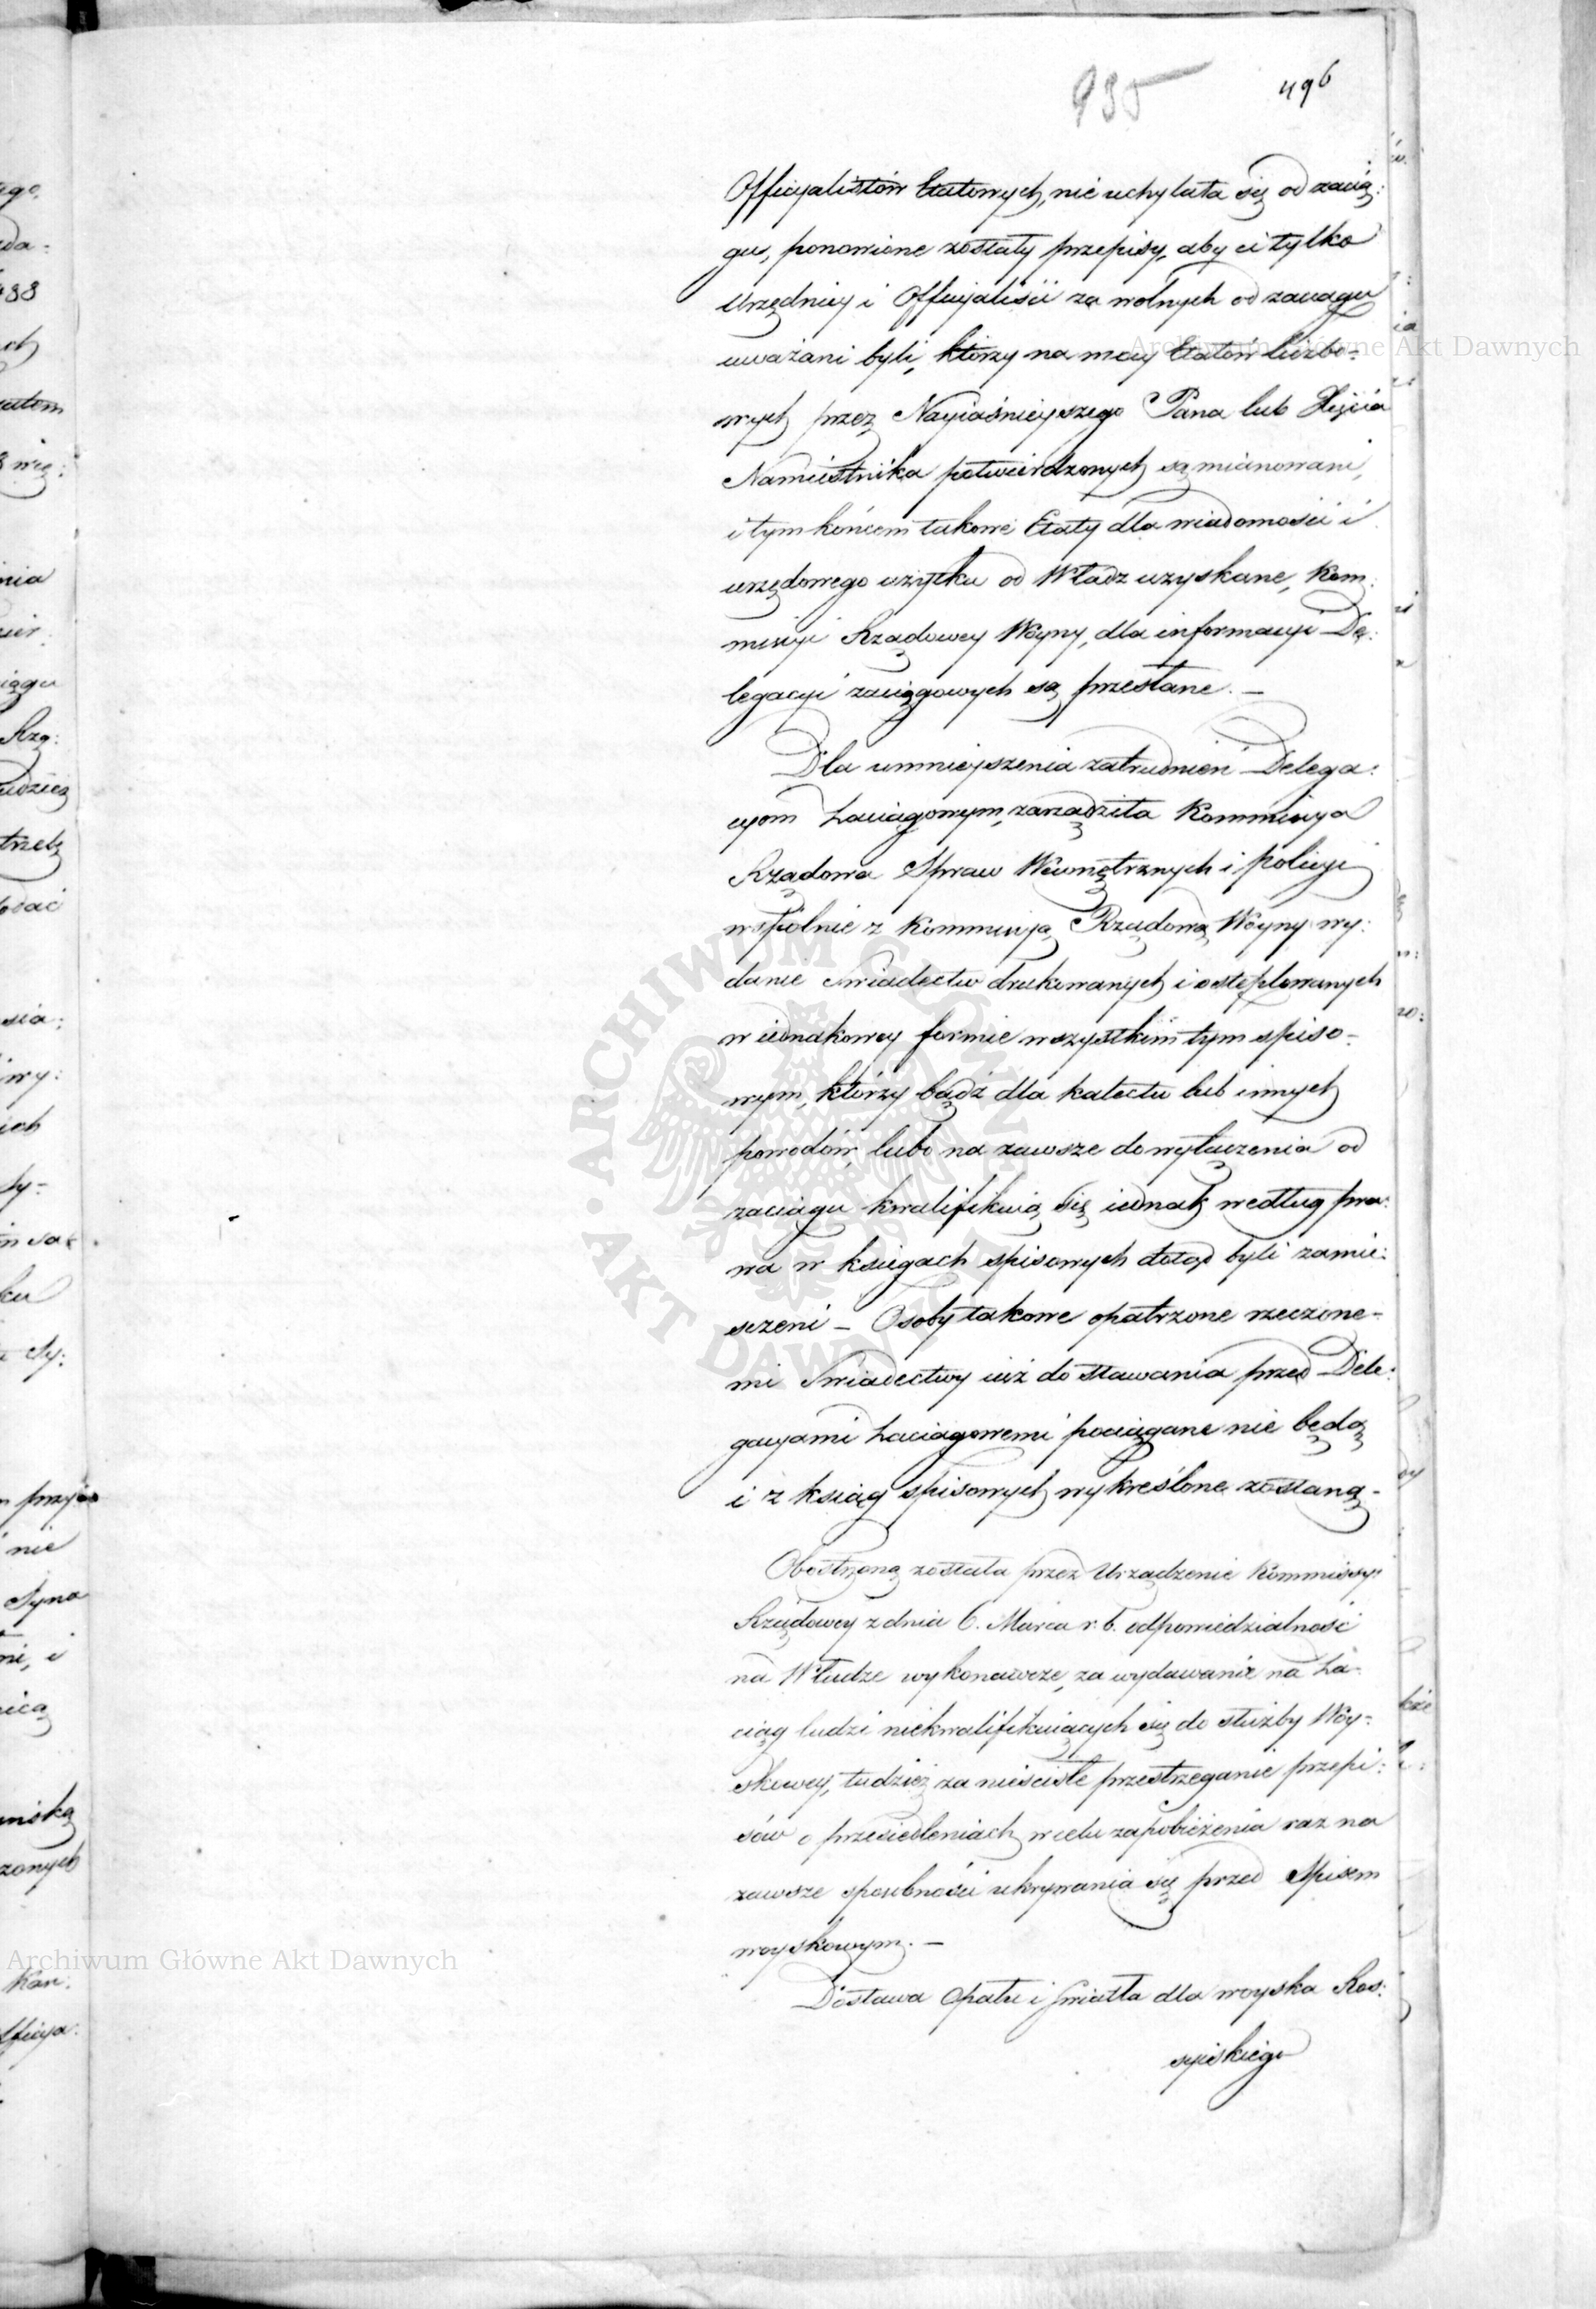 935 496
Officyalistów Etatowych, nie uchylała się od zacią:
gu, ponowione zostały przepisy, aby ci tylko
Urzędnicy i Officyaliści za wolnych od zaciągu
uważani byli, którzy na mocy Etatów liczbo-
wych przez Nayiaśnieyszego Pana lub Xięcia
Namiestnika potwierdzonych są mianowani,
i tym końcem takowe Etaty dla wiadomości i
urzędowego użytku od Władz uzyskane, Kom:
missyi Rządowey Woyny, dla informacyi De:
legacyi zaciągowych są przesłane. —
Dla umnieyszenia zatrudnień Delega:
cyom Zaciągowym, zarządziła Kommissya
Rządowa Spraw Wewnętrznych i Policyi
wspólnie z Kommissyą Rządową Woyny wy:
danie Swiadectw drukowanych i ostęplowanych
w iednakowey formie wszystkim tym spiso-
wym, którzy bądź dla kalectw lub innych
powodów, lubo na zawsze do wyłączenia od
zaciągu kwalifikuią się, iednak według pra:
wa w księgach spisowych dotąd byli zamie:
szczeni — Osoby takowe opatrzone rzeczone-
mi Swiadectwy iuż do stawania przed Dele:
gacyami Zaciągowemi pociągane nie będą
i z ksiąg spisowych wykreślone zostaną. -
Obostrzoną została przez Urządzenie Kommissyi
Rządowey z dnia 6. Marca r. b. odpowiedzialność
na Władze wykonawcze, za wydawanie na Za-
ciąg ludzi niekwalifikuiących się do służby Woy-
skowey, tudzież za nieścisłe przestrzeganie przepi:
sów o przesiedleniach, w celu zapobieżenia raz na
zawsze sposobności ukrywania się przed Spisem
woyskowym. —
Dostawa Opału i Swiatła dla woyska Ros:
syiskiego
Archiwum Główne Akt Dawnych
Archiwum Główne Akt Dawnych
ARCHIWUM GŁÓWNE AKT DAWNYCH